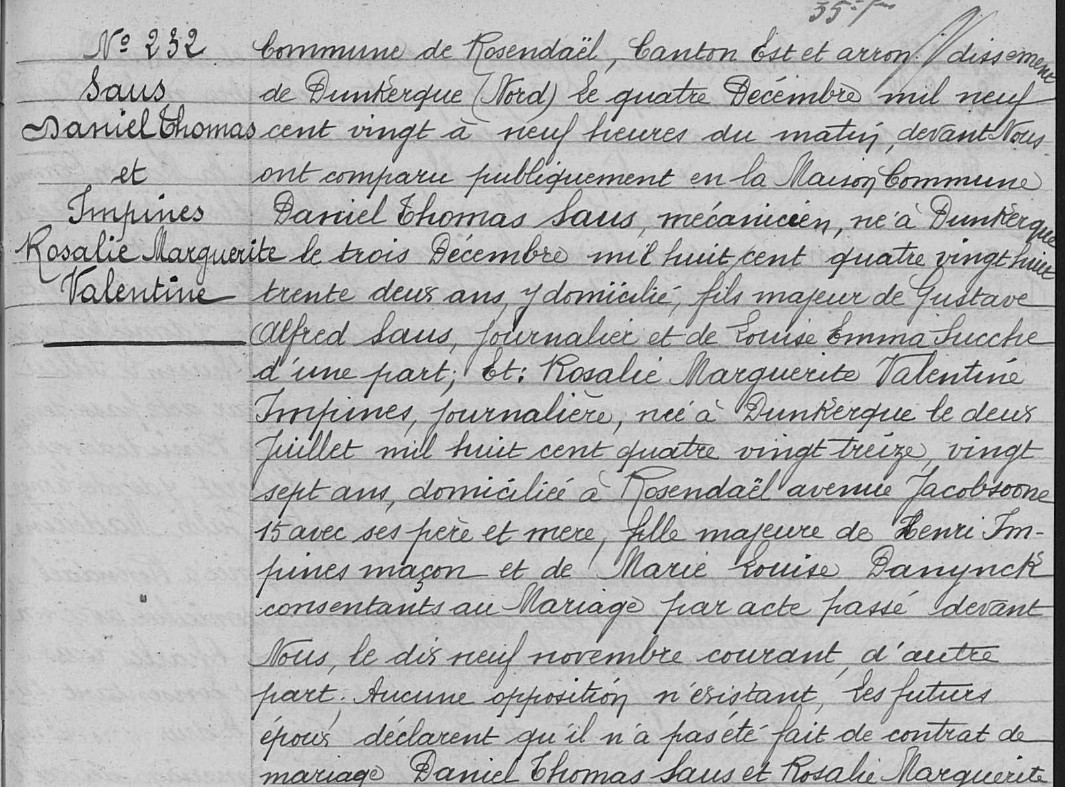 35
N° 232
Saus
Daniel Thomas
et
Impines
Rosalie Marguerite
Valentine
Commune de Rosendaël, Canton Est et arron dissement
de Dunkerque (Nord) le quatre Décembre mil neuf
cent vingt à neuf heures du matin, devant Nous
ont comparu publiquement en la Maison Commune
Daniel Thomas Saus, mécanicien, né à Dunkerque
le trois Décembre mil huit cent quatre vingt huit
trente deux ans, y domicilié, fils majeur de Gustave
Alfred Saus, journalier et de Louise Emma Lucche
d'une part; Et: Rosalie Marguerite Valentine
Impines, journalière, née à Dunkerque le deux
Juillet mil huit cent quatre vingt treize, vingt
sept ans, domiciliée à Rosendaël avenue Jacobsoone
15 avec ses père et mère, fille majeure de Henri Im-
pines maçon et de Marie Louise Danynck
consentants au Mariage par acte passé devant
Nous, le dix neuf novembre courant, d'autre
part; Aucune opposition n'existant, les futurs
époux déclarent qu'il n'a pas été fait de contrat de
mariage Daniel Thomas Saus et Rosalie Marguerite